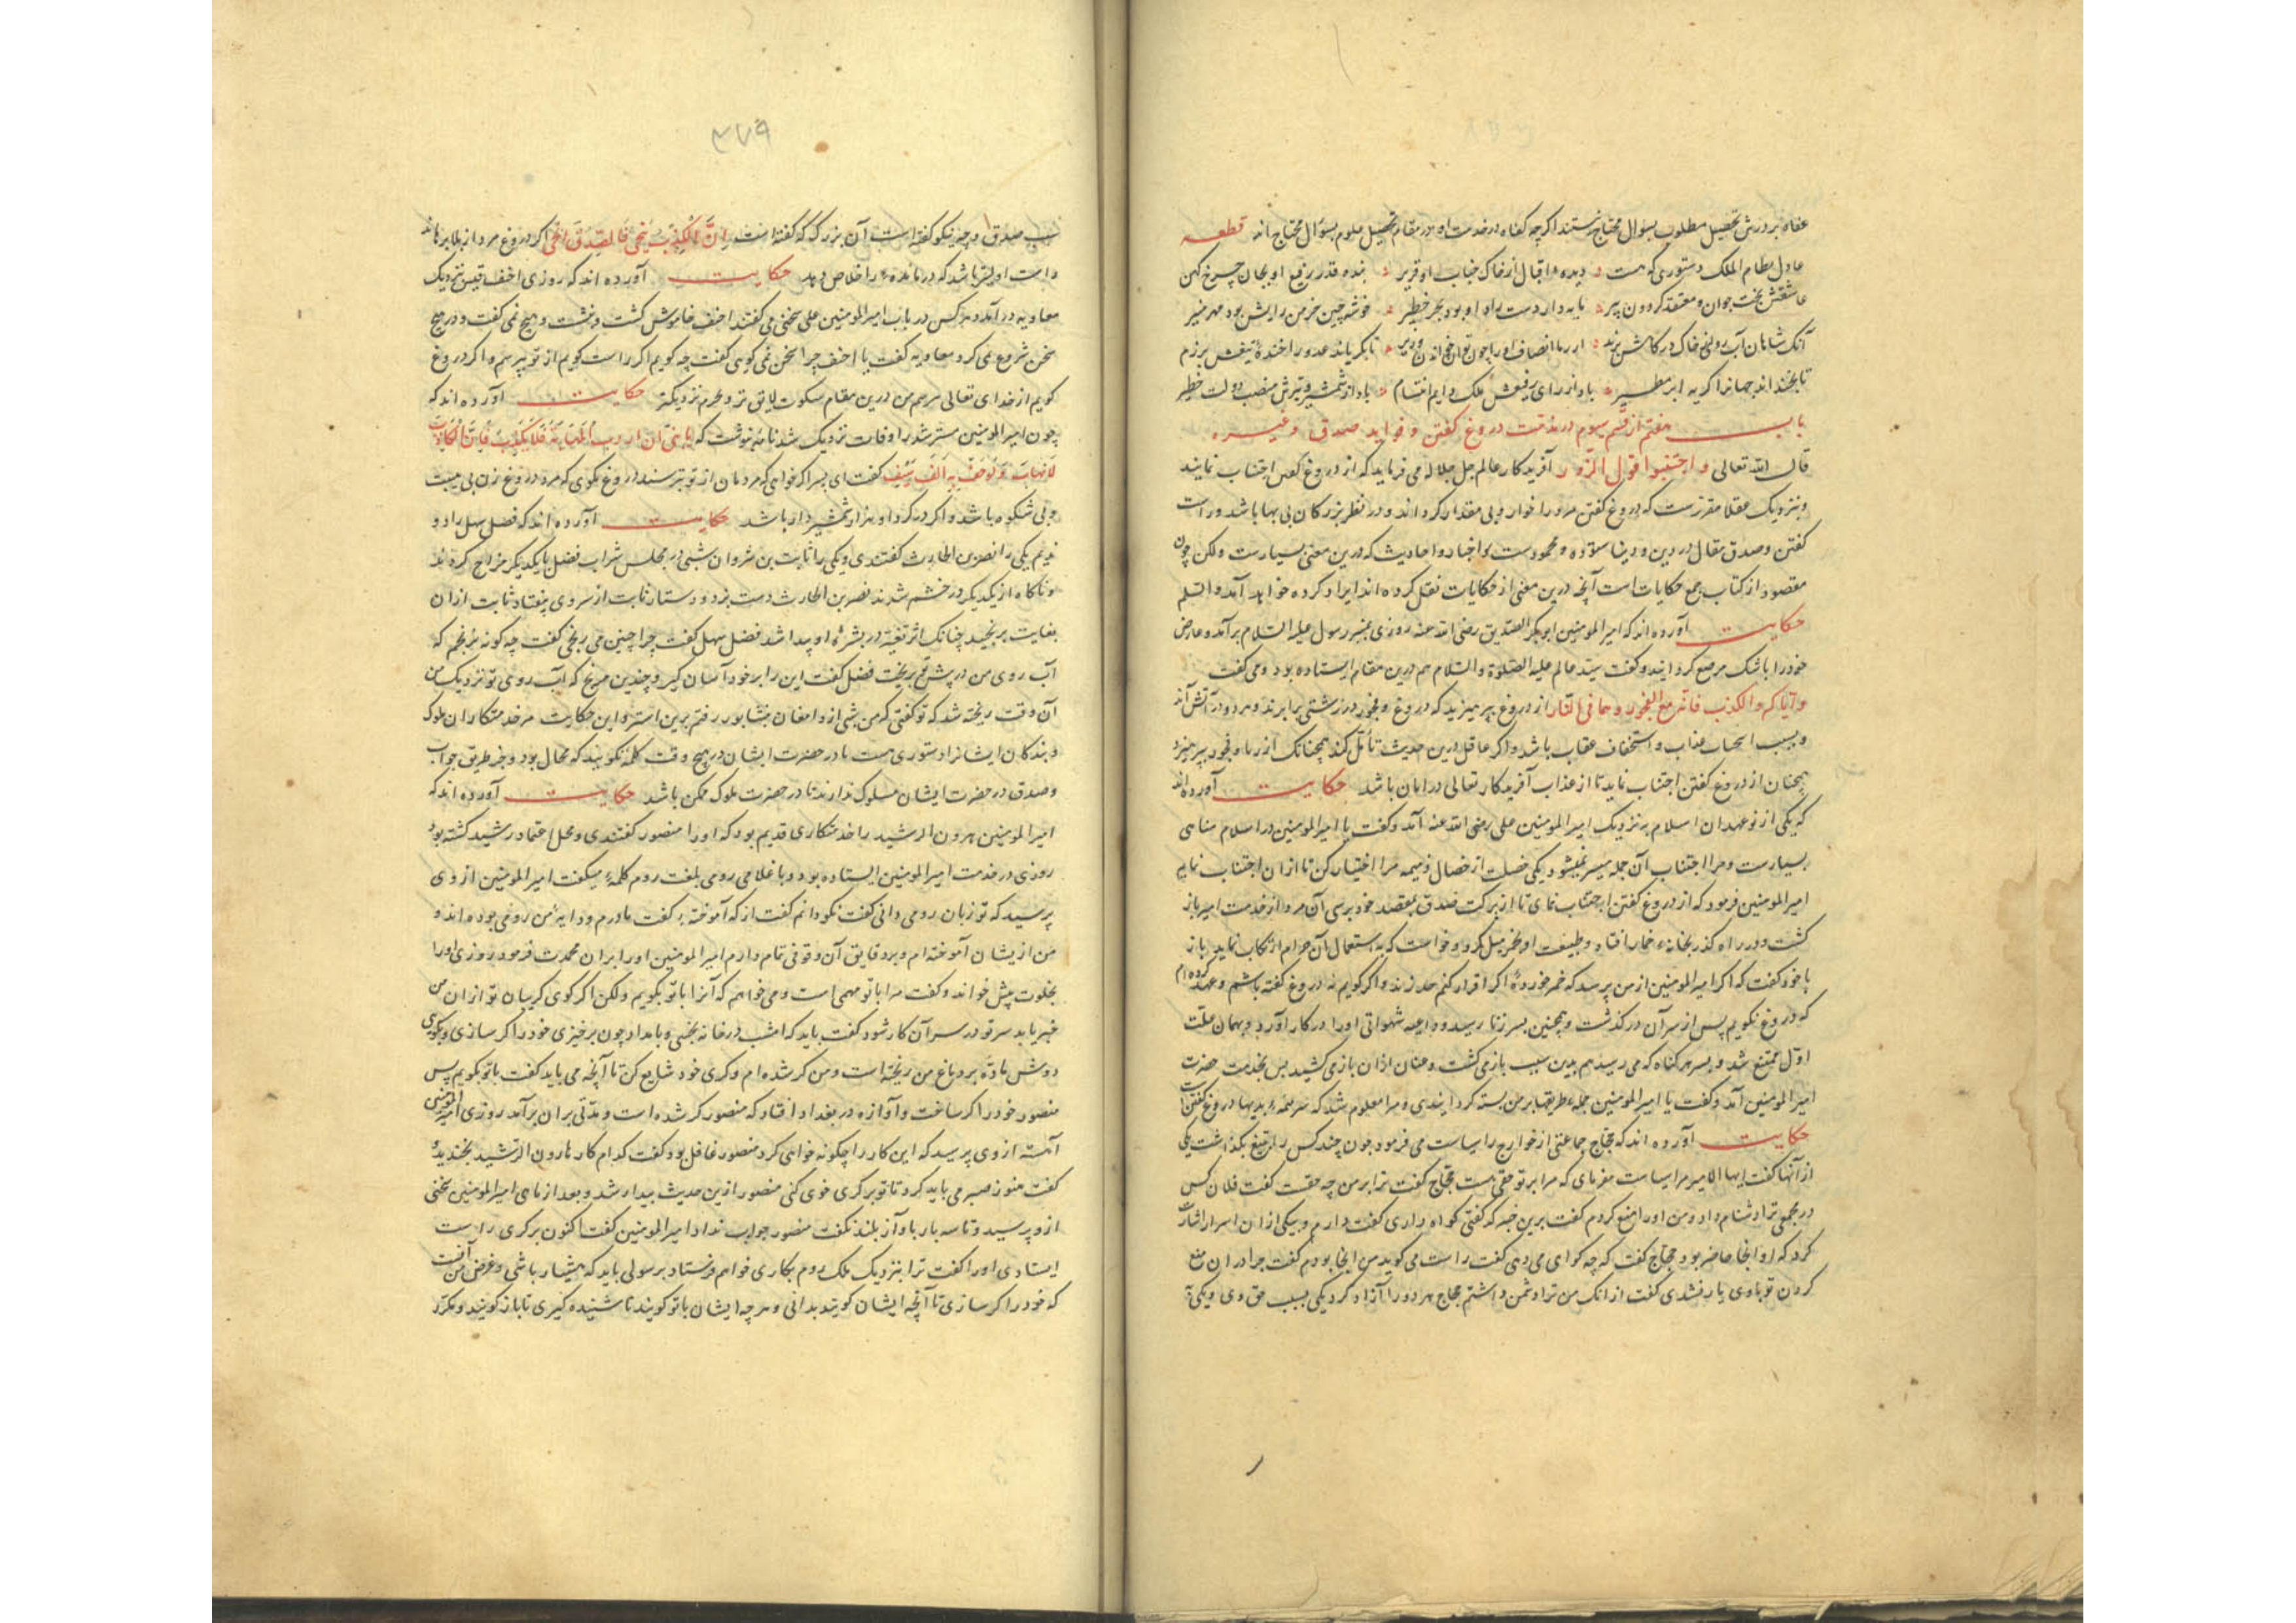 عفاه بر درش تحصیل مطلوب بسؤال محتاج نیستند اکرچه کفاه در خدمت او در مقام تحصیل علوم بسؤال محتاج اند قطعه
عادل نظام الملک دستوری که هست دیده اقبال از خاک جناب او قریر بنده قدر رفیع او بجان چرخ کهن
عاشقش بخت جوان و معتقد کردون پیر پایه دار دست راد او بود بحر خطیر خوشه چین خرمن رایش بود مهر منیر
آنک شاهان آب روی خاک درکاهش برند تا بکریاند عدو را خنده تیغش برزم
تا بخنداند جهانرا کریه ابر مطیر باد از رای رفیعش ملک دایم انتسام باد از شمشیر و تیرش منصب دولت خطیر
باب هفتم از قسم سیوم در مذمت دروغ کفتن و فواید صدق و غیره
قال الله تعالی و اجتنبوا قول الزور آفریدکار عالم جل جلاله می فرماید که از دروغ کفتن اجتناب نمایند
و بنزدیک عقلا مقررست که دروغ کفتن مرد را خوار و بی مقدار کرداند و در نظر بزرکان بی بها باشد و راست
کفتن و صدق مقال در دین و دنیا ستوده و محمودست و اخبار و احادیث که درین معنی بسیارست ولکن چون
مقصود از کتاب جمع حکایات است آنچه درین معنی از حکایات نقل کرده اند ایراد کرده خواهد آمد والسلم
حکایت آورده اند که امیر المومنین ابوبکر الصدیق رضی الله عنه روزی بمنبر رسول علیه السلام برآمد و عارض
خود را باشک مرصع کردانید و کفت سید عالم علیه الصلوة والسلام هم درین مقام ایستاده بود و می کفت
و ایاکم والکذب فانه مع الفجور و هما فی النار از دروغ بپرهیزید که دروغ و فجور در زشتی برابرند و هر دو در آتش اند
و بسبب اصحاب عذاب و استخفاف عقاب باشد و اکر عاقل درین حدیث تأمل کند همچنانک از زنا و فجور بپرهیزد
همچنان از دروغ کفتن اجتناب نماید تا از عذاب آفریدکار تعالی در امان باشد حکایت آورده اند
که یکی از نوعهدان اسلام بنزدیک امیر المومنین علی رضی الله عنه آمد و کفت یا امیر المومنین در اسلام مناهی
بسیارست و مرا اجتناب آن جمله میسر نمیشود یکی خصلت از خصال ذمیمه مرا اختیار کن تا ازان اجتناب نمایم
امیر المومنین فرمود که از دروغ کفتن اجتناب نمای تا از برکت صدق بمقصد خود برسی آن مرد از خدمت امیر باز
کشت و در راه کذر بخانه خمار افتاد و طبیعت او بخمر میل کرد و خواست که به استعمال آن حرام ارتکاب نماید باز
با خود کفت که اکر امیر المومنین از من پرسد که خمر خورده اکر اقرار کنم حد زند و اکر کویم نه دروغ کفته باشم و عهد کرده ام
که دروغ نکویم پس از سر آن درکذشت و همچنین بسر زنا رسید و داعیه شهوانی او را در کار آورد و بهمان علت
اول ممتنع شد و بسر هر کناه که می رسید هم بدین سبب باز می کشت و عنان ازان باز می کشید پس بخدمت حضرت
امیر المومنین آمد و کفت یا امیر المومنین جمله طریقها بر من بسته کردانیدی و مرا معلوم شد که سر همه بدیها دروغ کفتن است
حکایت آورده اند که حجاج جماعتی از خوارج را سیاست می فرمود چون چند کس را بر تیغ بکذاشت یکی
از آنها کفت ایها الامیر مرا سیاست مفرمای که مرا بر تو حقی هست حجاج کفت ترا بر من چه حقست کفت فلان کس
در مجمعی ترا دشنام داد و من او را منع کردم کفت برین خبر که کفتی کواه داری کفت دارم و بیکی ازان اسرا اشارت
کرد که او انجا حاضر بود حجاج کفت که چه کوای می دهی کفت راست می کوید من انجا بودم کفت چرا دران منع
کردن تو باوی یار نشدی کفت از انک من ترا دشمن داشتم حجاج هر دو را آزاد کرد یکی بسبب حق وی و یکی
٣٧٩
بسبب صدق او چه نیکو کفته است آن بزرک که کفته است ان الکذب ینجی فالصدق انجی اکر دروغ مرد از بلا برهاند
راست اولیتر باشد که درمانده را خلاص دهد حکایت آورده اند که روزی احنف قیس نزدیک
معاویه درآمد و هر کس در باب امیر المومنین علی سخنی می کفتند احنف خاموش کشت و بنشست و هیچ نمی کفت و در هیچ
سخن شروع نمی کرد معاویه کفت یا احنف چرا سخن نمی کوی کفت چه کویم اکر راست کویم از تو بترسم و اکر دروغ
کویم از خدای تعالی ترسم من درین مقام سکوت لایق تر و بحرم نزدیکتر حکایت آورده اند که
چون امیر المومنین مسترشد را وفات نزدیک شد نامه نوشت که یا بنی ان اردت المهابة فلا تکذب فان الکاذب
لا یهاب و لو حف به الف سیف کفت ای پسر اکر خواهی که مردمان از تو بترسند دروغ مکوی که مرد دروغ زن بی هیبت
و بی شکوه باشد و اکر در کرد او هزار شمشیردار باشد حکایت آورده اند که فضل سهل را دو
ندیم یکی را نصر بن الحارث کفتندی و یکی را ثابت بن مروان شبی در مجلس شراب فضل با یکدیکر مزاح کردند
و ناکاه از یکدیکر در خشم شدند نصر بن الحارث دست بزد و دستار ثابت از سر وی بیفتاد ثابت ازان
بغایت برنجید چنانک اثر تغیر در بشره او پیدا شد فضل سهل کفت چرا چنین می رنجی کفت چه کونه نرنجم که
آب روی من در پیش تو بریخت فضل کفت این را بر خود آسان کیر و چندین مرنج که آب روی تو نزدیک من
آن وقت ریخته شد که تو کفتی که من شبی از دامغان بنشابور رفتم برین استر و این حکایت مر خدمتکاران ملوک
و بندکان ایشانرا دستوری هست تا در حضرت ایشان در هیچ وقت کلمه نکویند که محال بود و جز طریق جواب
و صدق در حضرت ایشان مسلوک ندارند تا در حضرت ملوک ممکن باشد حکایت آورده اند که
امیر المومنین هرون الرشید را خدمتکاری قدیم بود که او را منصور کفتندی و محل اعتماد رشید کشته بود
روزی در خدمت امیر المومنین ایستاده بود و با غلامی رومی بلغت روم کلمه میکفت امیر المومنین از وی
پرسید که تو زبان رومی دانی کفت نکو دانم کفت از که آموخته کفت مادرم و دایه من رومی بوده اند و
من ازیشان آموخته ام و بر دقایق آن وقوفی تمام دارم امیر المومنین او را بران محمدت فرمود روزی او را
بخلوت پیش خواند و کفت مرا با تو مهمی است و می خواهم که آنرا با تو بکویم ولکن اکر کوی کریبان تو ازان من
خبر یابد سر تو در سر آن کار شود کفت باید که امشب در خانه بخسبی و بامداد چون برخیزی خود را کر سازی و بکوی
دوش ماده بر دماغ من ریخته است و من کر شده ام و کری خود شایع کن تا آنچه می باید کفت با تو بکویم پس
منصور خود را کر ساخت و آوازه در بغداد افتاد که منصور کر شده است و مدتی بران برآمد روزی امیر المومنین
آهسته از وی پرسید که این کار را چکونه خواهی کرد منصور غافل بود کفت کدام کار هارون الرشید بخندید و
کفت هنوز صبر می باید کرد تا تو بر کری خوی کنی منصور ازین حدیث بیدار شد و بعد از ماهی امیر المومنین سخنی
ازو پرسید و تا سه بار باواز بلند نکفت منصور جواب نداد امیر المومنین کفت اکنون بر کری راست
ایستادی او را کفت ترا بنزدیک ملک روم بکاری خواهم فرستاد برسولی باید که هشیار باشی و غرض من آنست
که خود را کر سازی تا آنچه ایشان کویند بدانی و هر چه ایشان با تو کویند تا شنیده کیری تا باز کویند و مکرر